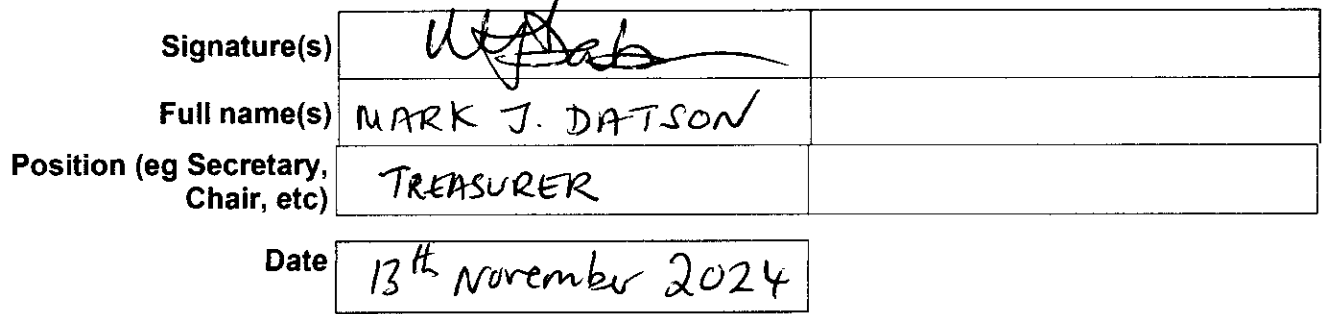 Signature(s)
Full name(s) MARK J. DATSON
Position (eg Secretary, TREASURER
Chair, etc)
Date 13th November 2024